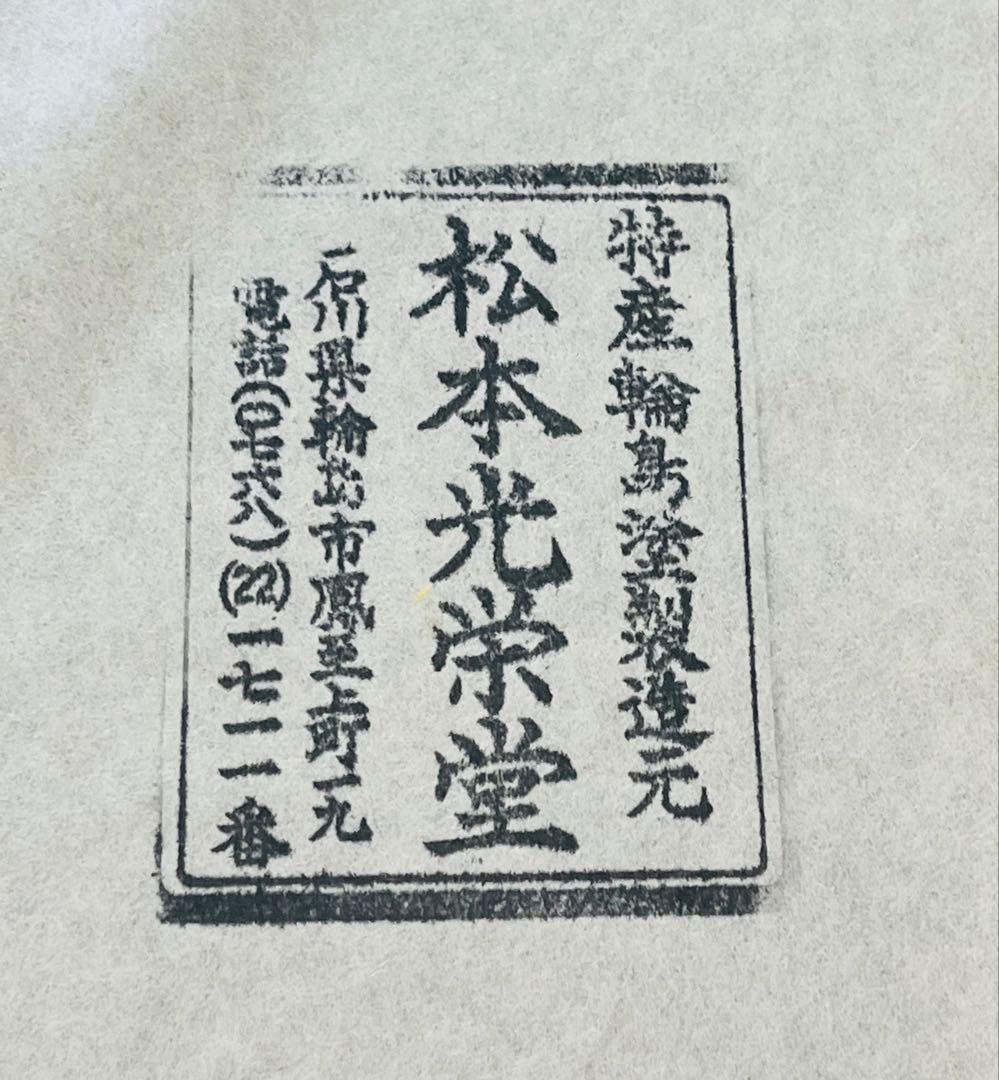 特産輪島塗製造元
松本光栄堂
石川県輪島市鳳至上町一九
電話(〇七六八)(22)一七一一番